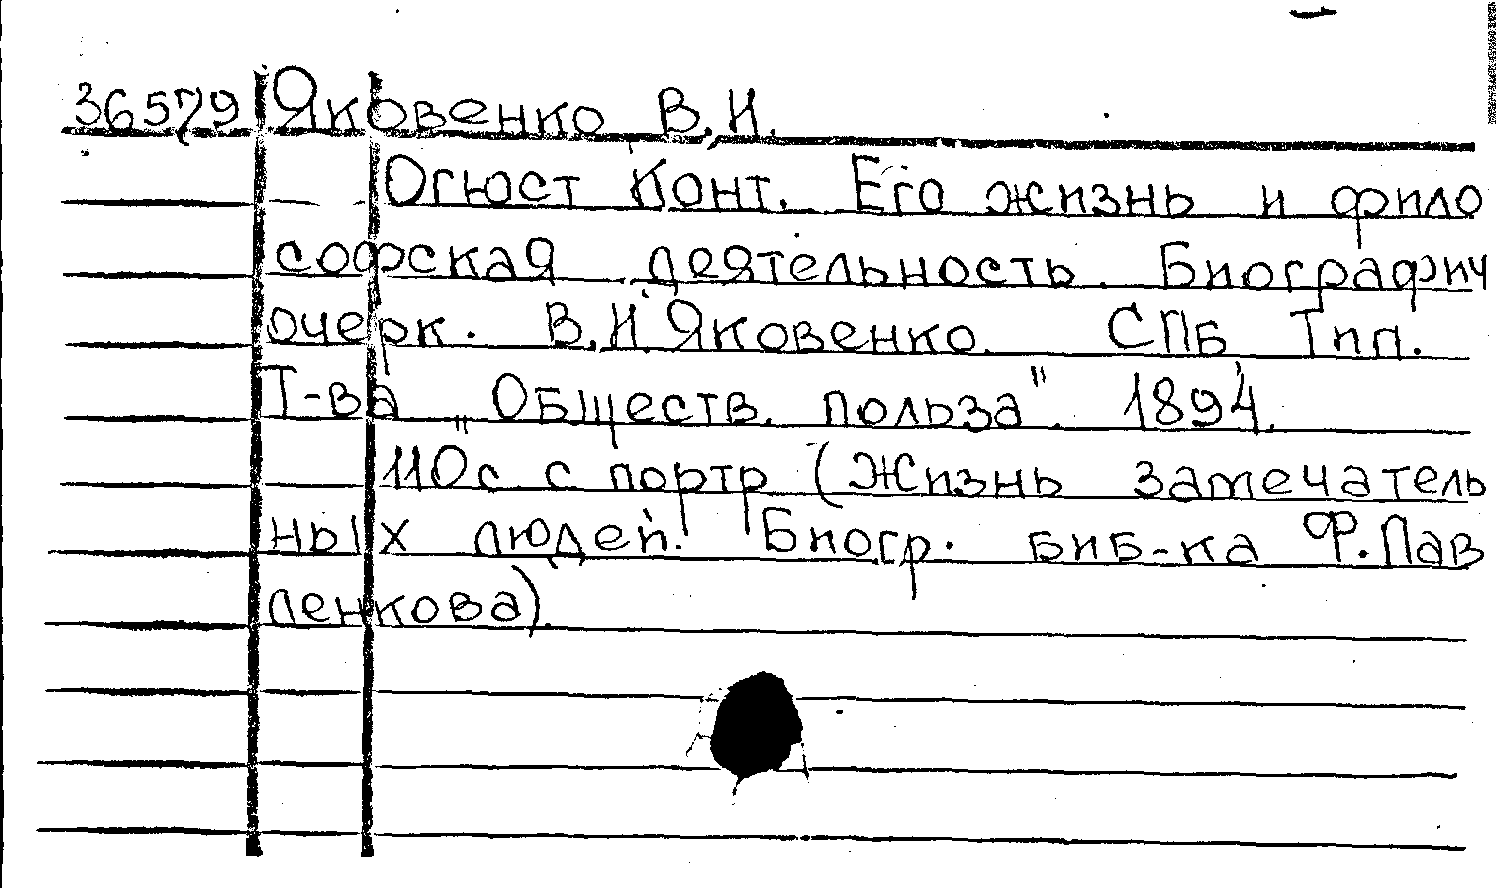 36579 Яковенко В.И.
Огюст Конт. Его жизнь и фило
софская деятельность. Биографич
очерк. В.И Яковенко. СПБ Тип.
Т-ва „Обществ. польза". 1894.
110с с портр (Жизнь замечатель
ных людей. Биогр. биб-ка Ф.Пав
ленкова).